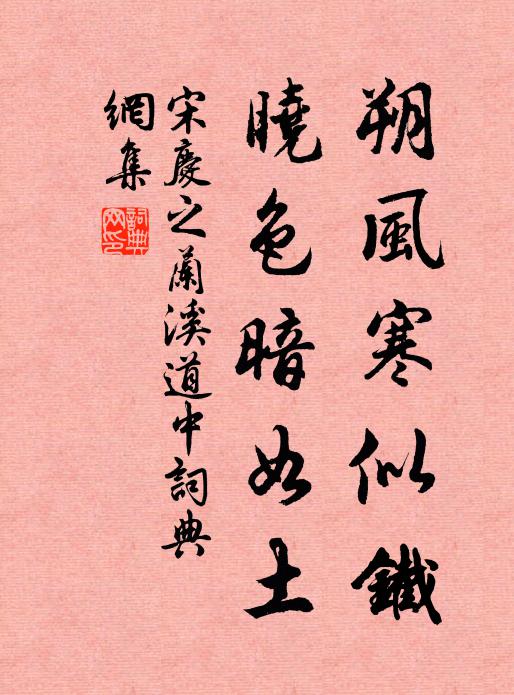 朔風寒似鐵
曉色暗如土
宋慶之蘭溪道中詞典
網集
詞典网印